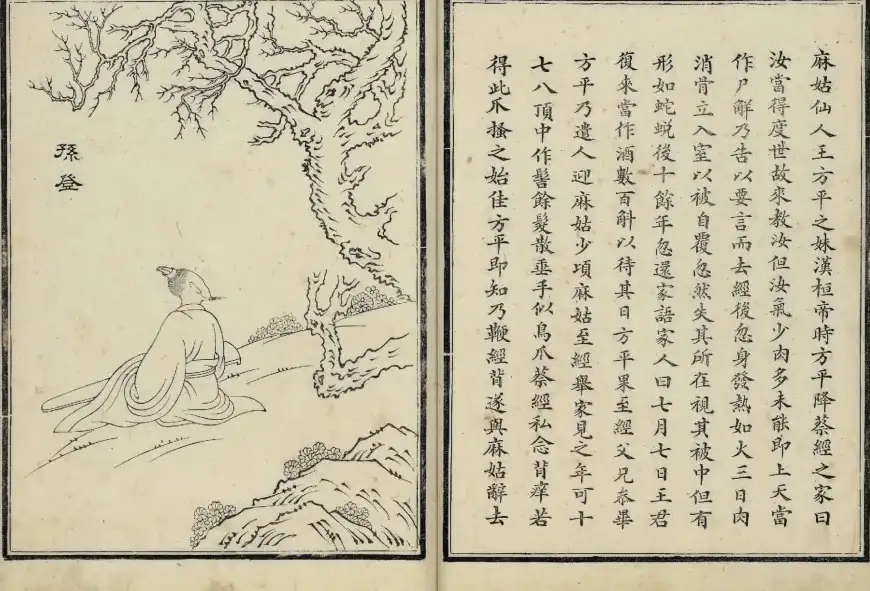 麻姑仙人王方平之妹漢桓帝時方平降蔡經之家曰
汝當得度世故來教汝但汝氣少肉多未能即上天當
作尸解乃告以要言而去經後忽身發熱如火三日肉
消骨立入室以被自覆忽然失其所在視其被中但有
形如蛇蛻後十餘年忽還家語家人曰七月七日王君
復來當作酒數百斛以待其日方平果至經父兄叅畢
方平乃遣人迎麻姑少頃麻姑至經舉家見之年可十
七八頂中作髻餘髮散垂手似鳥爪蔡經私念背癢若
得此爪搔之始佳方平即知乃鞭經背遂與麻姑辭去
孫登